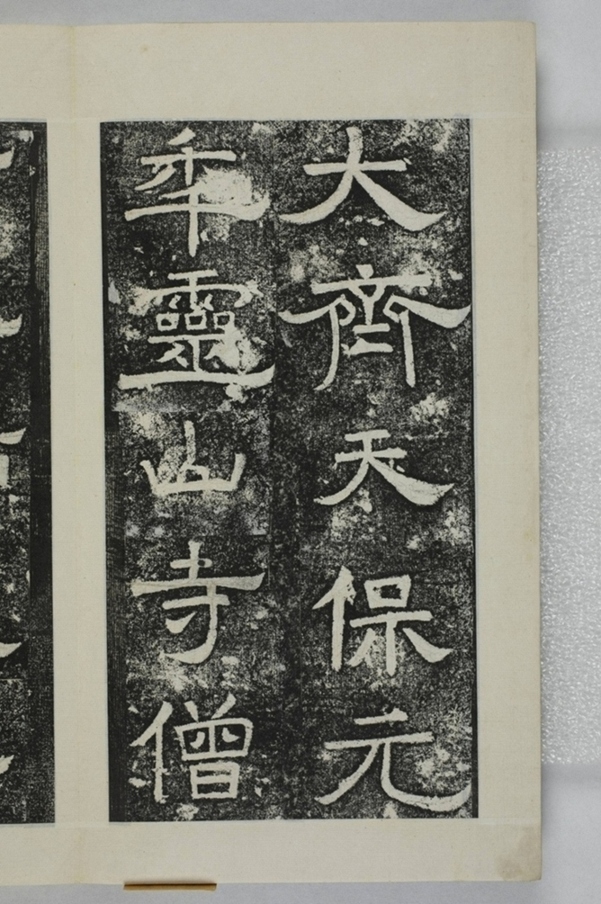 大齊天保元
年靈山寺僧